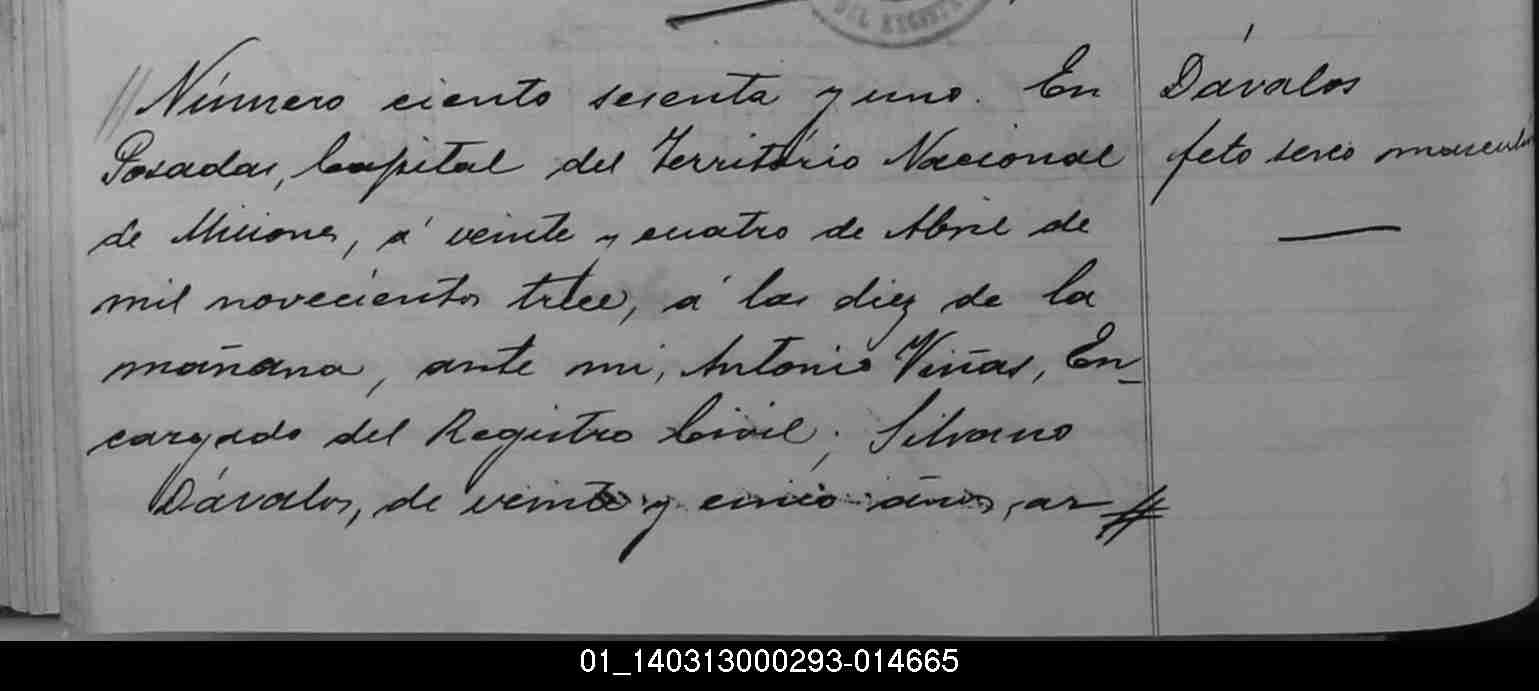 DEL REGISTR
Número ciento sesenta y uno. En
Posadas, Capital del Territorio Nacional
de Misiones, á veinte y cuatro de Abril de
mil novecientos trece, á las diez de la
mañana, ante mi, Antonio Viñas, En-
cargado del Registro Civil; Silvano
Dávalos, de veinte y cinco años, ar
Dávalos
feto sexo masculi
01_140313000293-014665